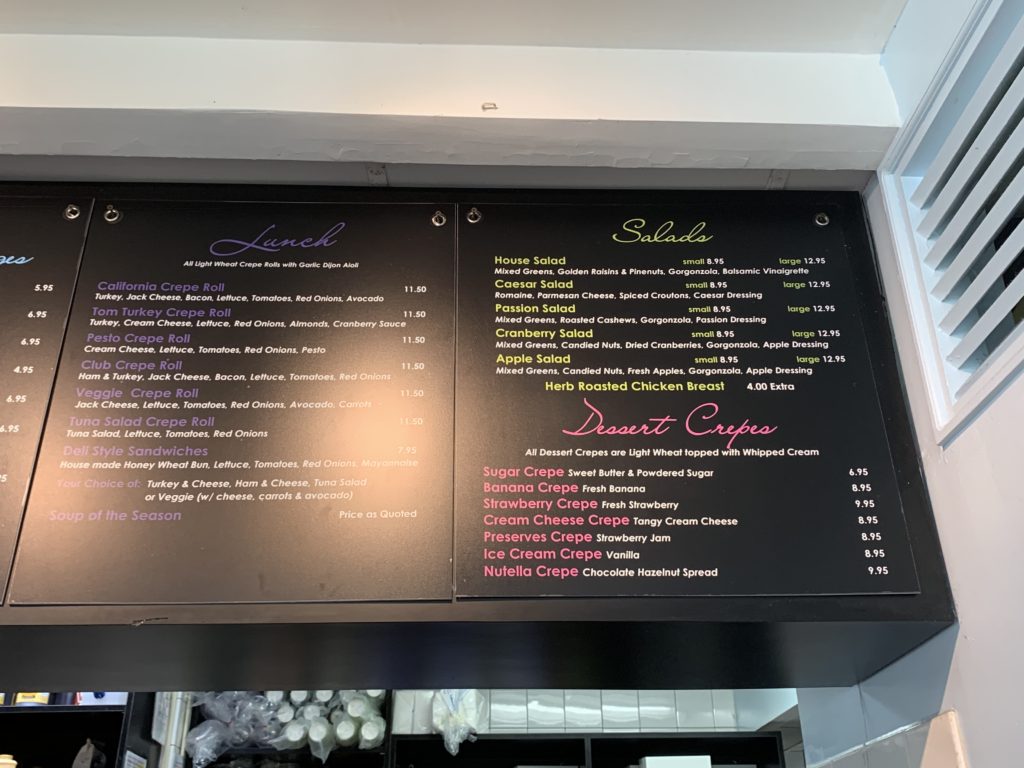 ges
5.95
6.95
6.95
4.95
6.95
6.95
Lunch
All Light Wheat Crepe Rolls with Garlic Dijon Aioli
California Crepe Roll 11.50
Turkey, Jack Cheese, Bacon, Lettuce, Tomatoes, Red Onions, Avocado
Tom Turkey Crepe Roll 11.50
Turkey, Cream Cheese, Lettuce, Red Onions, Almonds, Cranberry Sauce
Pesto Crepe Roll 11.50
Cream Cheese, Lettuce, Tomatoes, Red Onions, Pesto
Club Crepe Roll 11.50
Ham & Turkey, Jack Cheese, Bacon, Lettuce, Tomatoes, Red Onions
Veggie Crepe Roll 11.50
Jack Cheese, Lettuce, Tomatoes, Red Onions, Avocado, Carrots
Tuna Salad Crepe Roll 11.50
Tuna Salad, Lettuce, Tomatoes, Red Onions
Deli Style Sandwiches 7.95
House made Honey Wheat Bun, Lettuce, Tomatoes, Red Onions, Mayonnaise
Your Choice of: Turkey & Cheese, Ham & Cheese, Tuna Salad
or Veggie (w/ cheese, carrots & avocado)
Soup of the Season Price as Quoted
Salads
House Salad small 8.95 large 12.95
Mixed Greens, Golden Raisins & Pinenuts, Gorgonzola, Balsamic Vinaigrette
Caesar Salad small 8.95 large 12.95
Romaine, Parmesan Cheese, Spiced Croutons, Caesar Dressing
Passion Salad small 8.95 large 12.95
Mixed Greens, Roasted Cashews, Gorgonzola, Passion Dressing
Cranberry Salad small 8.95 large 12.95
Mixed Greens, Candied Nuts, Dried Cranberries, Gorgonzola, Apple Dressing
Apple Salad small 8.95 large 12.95
Mixed Greens, Candied Nuts, Fresh Apples, Gorgonzola, Apple Dressing
Herb Roasted Chicken Breast 4.00 Extra
Dessert Crepes
All Dessert Crepes are Light Wheat topped with Whipped Cream
Sugar Crepe Sweet Butter & Powdered Sugar 6.95
Banana Crepe Fresh Banana 8.95
Strawberry Crepe Fresh Strawberry 9.95
Cream Cheese Crepe Tangy Cream Cheese 8.95
Preserves Crepe Strawberry Jam 8.95
Ice Cream Crepe Vanilla 8.95
Nutella Crepe Chocolate Hazelnut Spread 9.95